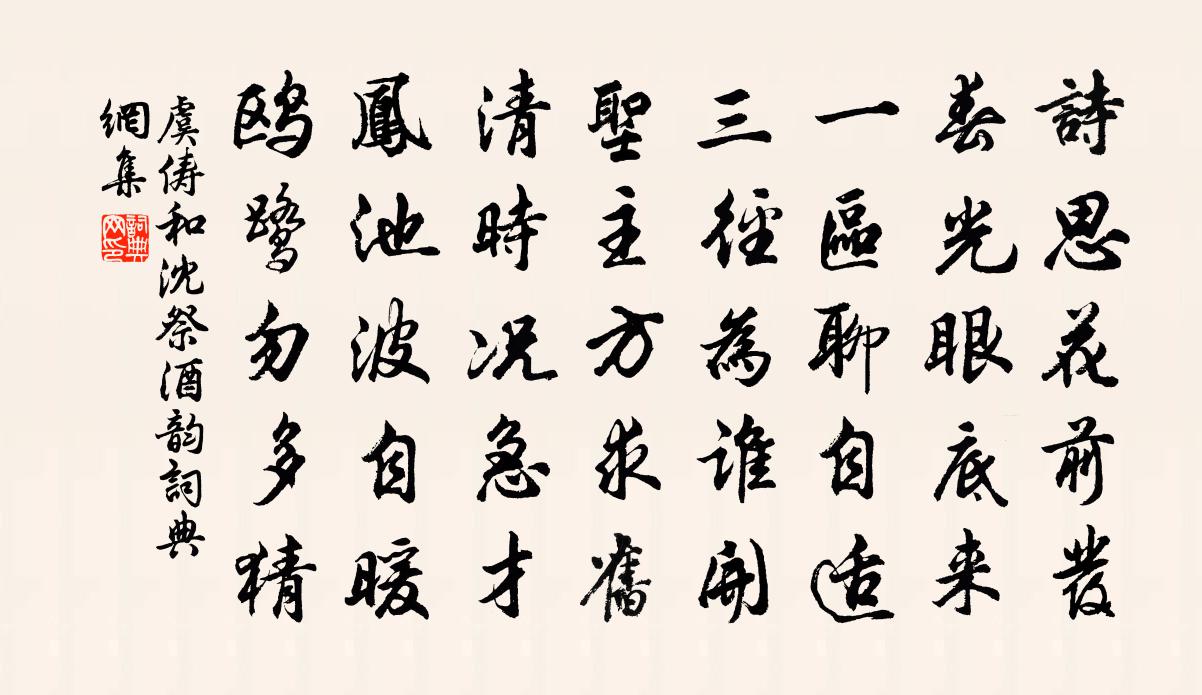 詩思花前發
春光眼底来
一區聊自适
三徑為誰開
聖主方求舊
清時况急才
鳳池波自暖
鸥鹭勿多猜
虞俦和沈祭酒韵詞典
網集
詞典
网印